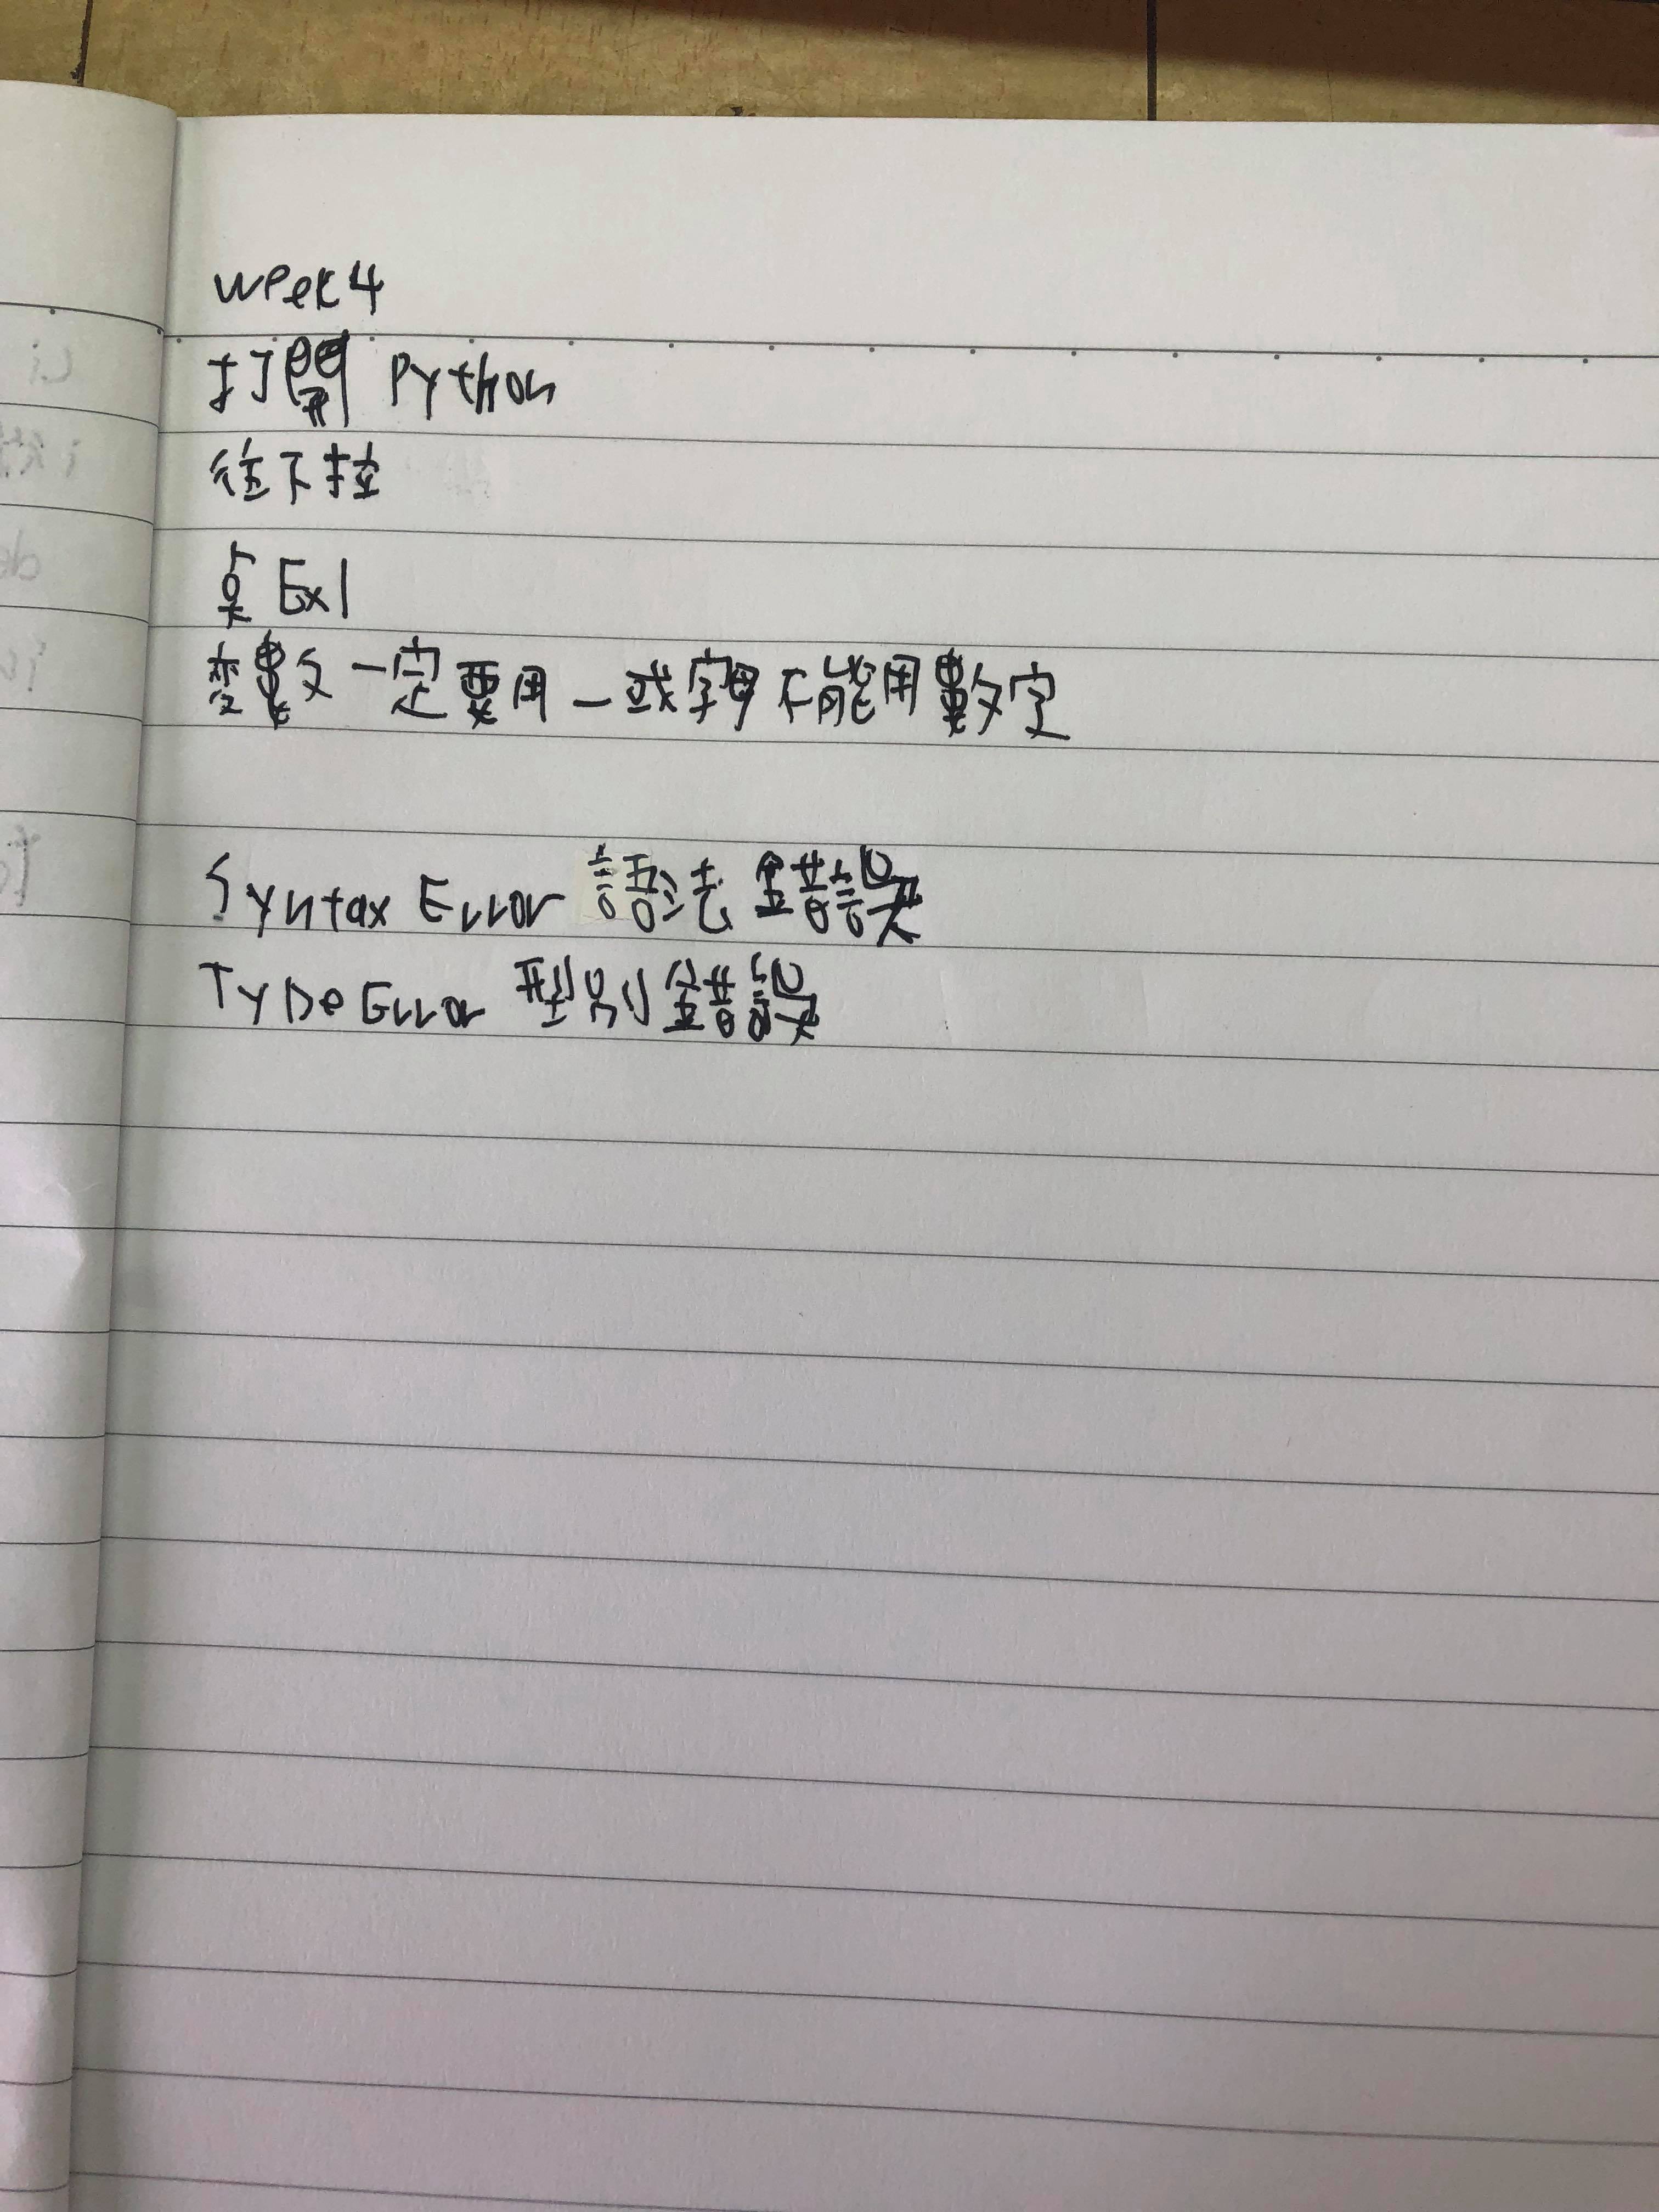 week4
打開 Python
往下拉
点 Ex1
変數一定要用_或字母不能用數字
Syntax Error 語法錯誤
Type Error 型別錯誤